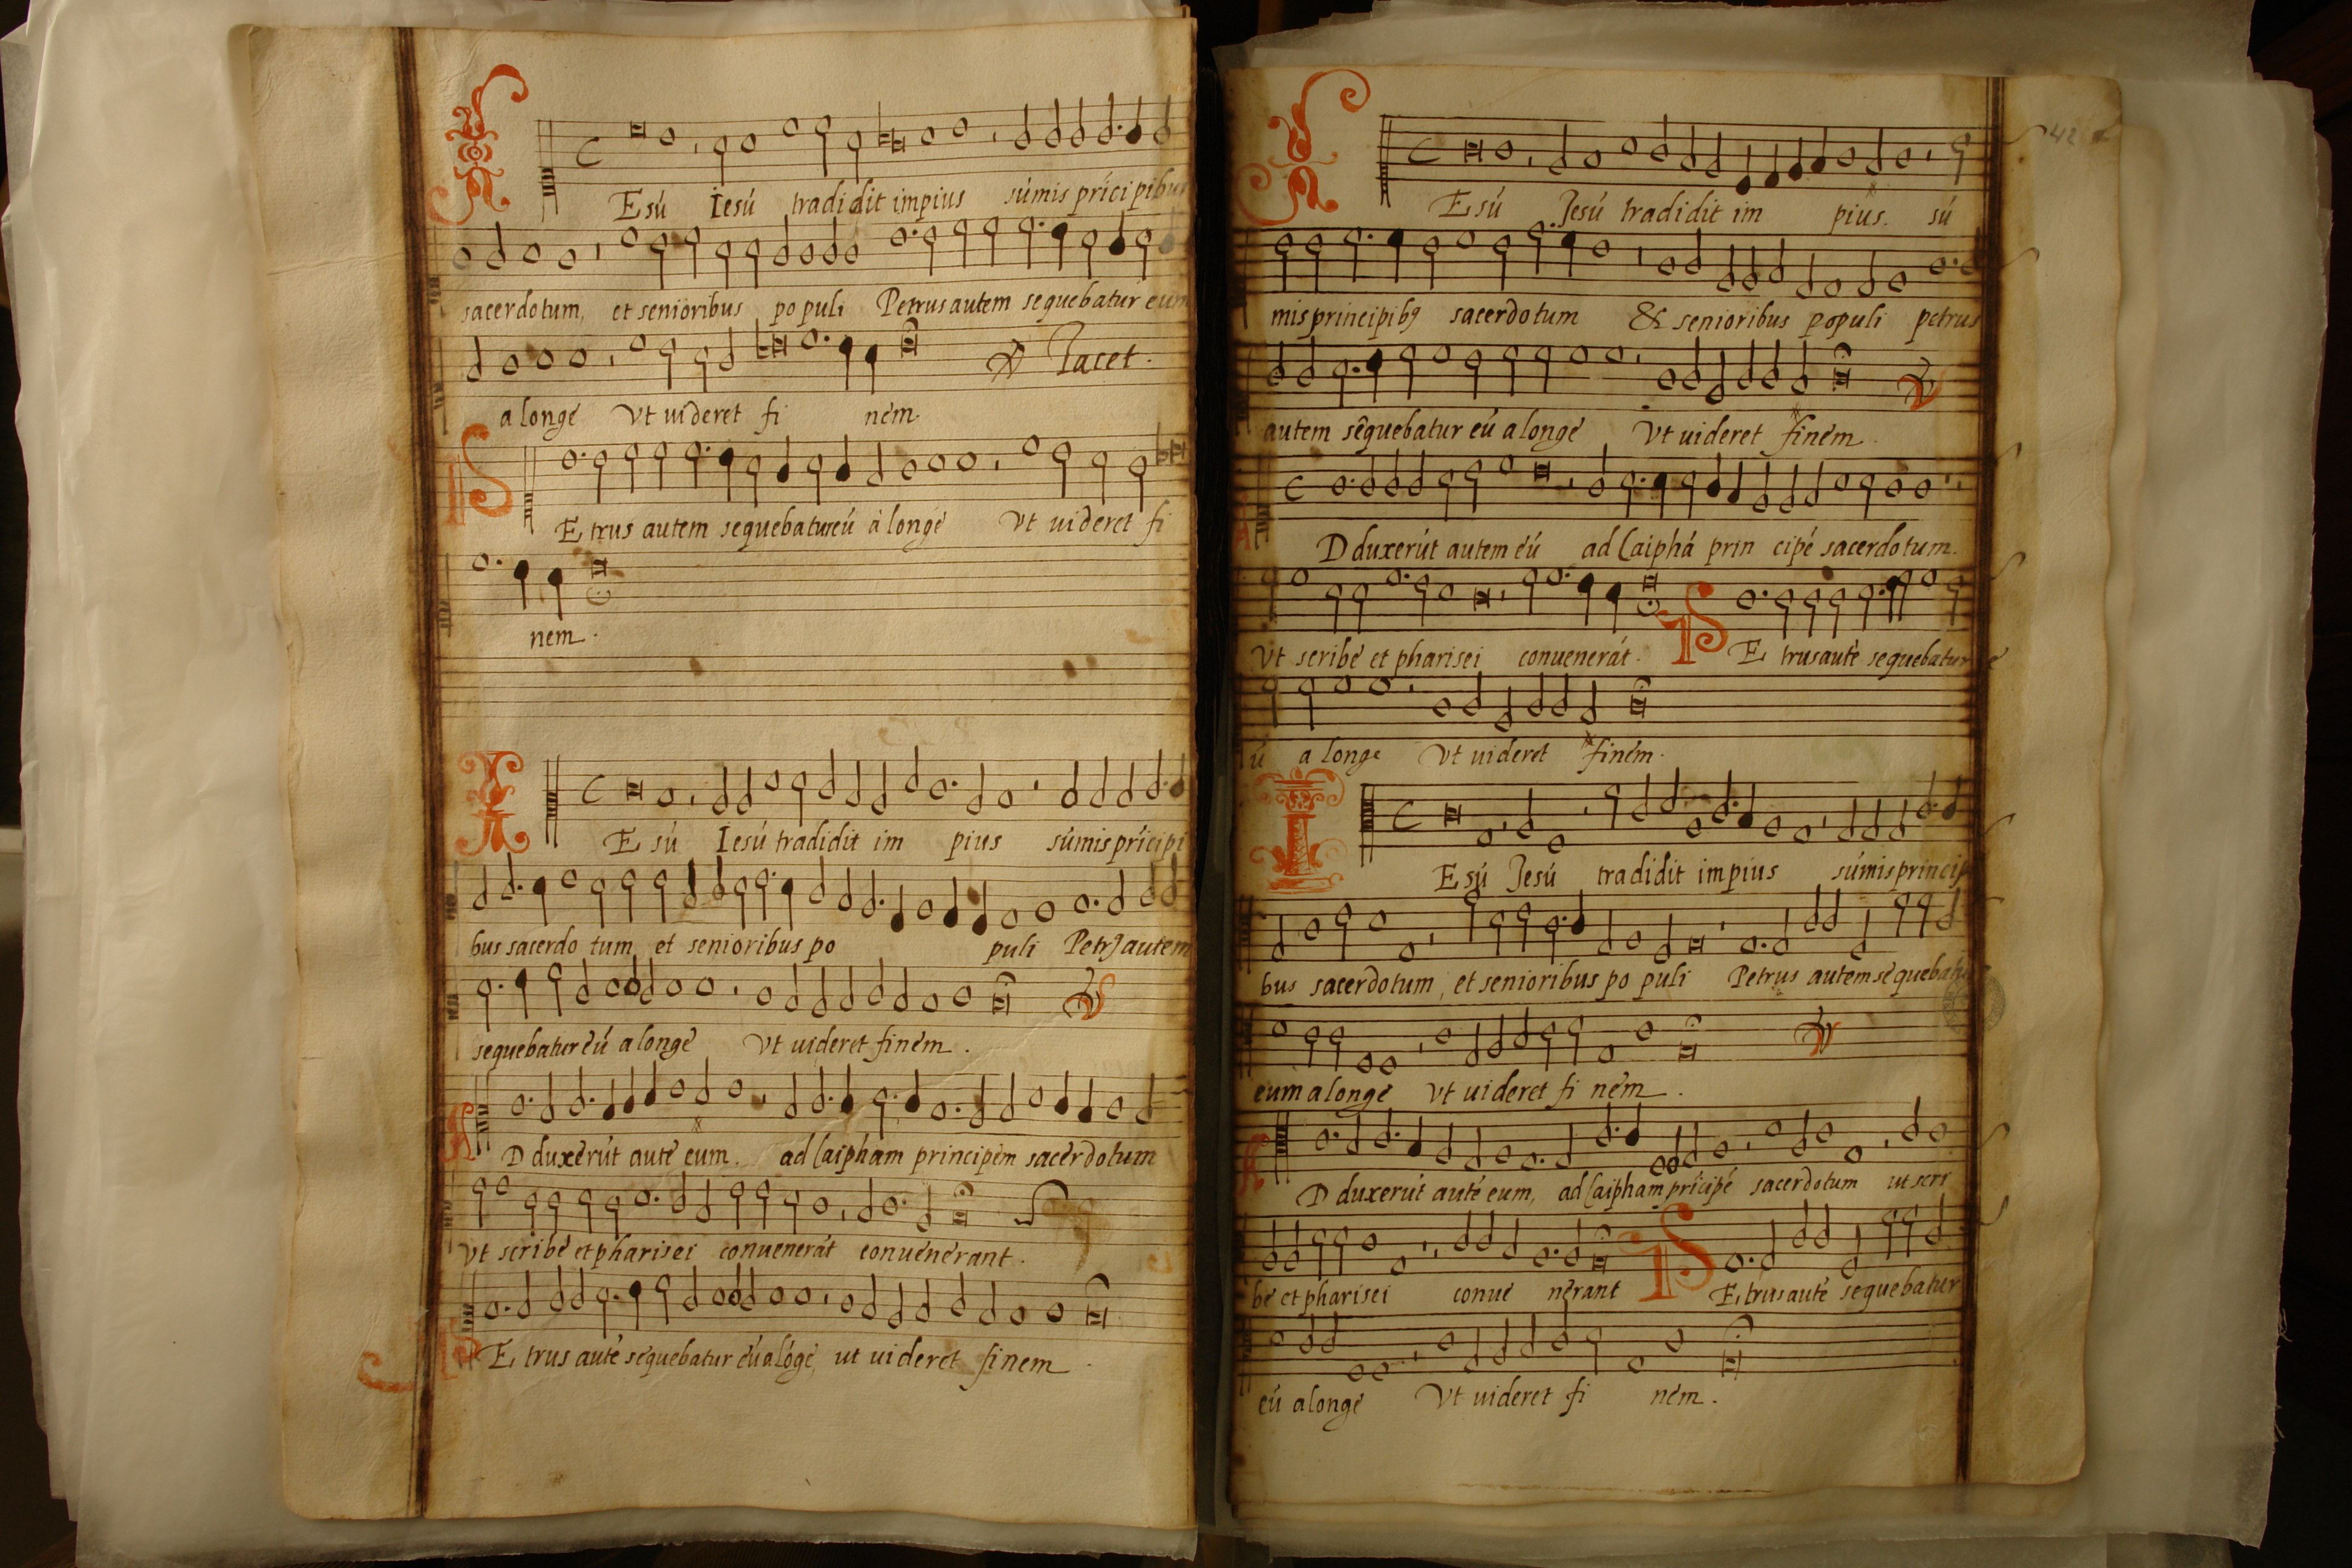 IEsú Iesú tradidit impius súmis prícipibus
sacerdotum, et senioribus populi Petrus autem sequebatur eum
a longe Vt uideret finem.
℣ Tacet.
PEtrus autem sequebatur eú a longe Vt uideret fi
nem.
IEsú Iesú tradidit impius súmis prícipi
bus sacerdotum et senioribus populi Petrꝯ autem
sequebatur eú a longe Vt uideret finem.
℣
AD duxerút auté eum. ad Caipham principem sacerdotum
Vt scribe et pharisei conuenerát conuenerant.
PEtrus auté sequebatur eú a lóge, ut uideret finem.
42
IEsú Jesú tradidit impius. sú
mis principibꝯ sacerdotum & senioribus populi petrus
autem sequebatur eú a longe Vt uideret finem.
℣
AD duxerút autem eú ad Caiphá principé sacerdotum.
Vt scribe et pharisei conuenerát. PEtrus auté sequebatur e
ú a longe Vt uideret finem.
IEsú Jesú tradidit impius súmis princip
bus sacerdotum, et senioribus populi Petrus autem sequebatu
eum a longe Vt uideret finem.
℣
AD duxerút auté eum, ad Caipham prícipé sacerdotum ut scri
be et pharisei conuenerant PEtrus auté sequebatur
eú a longe Vt uideret finem.